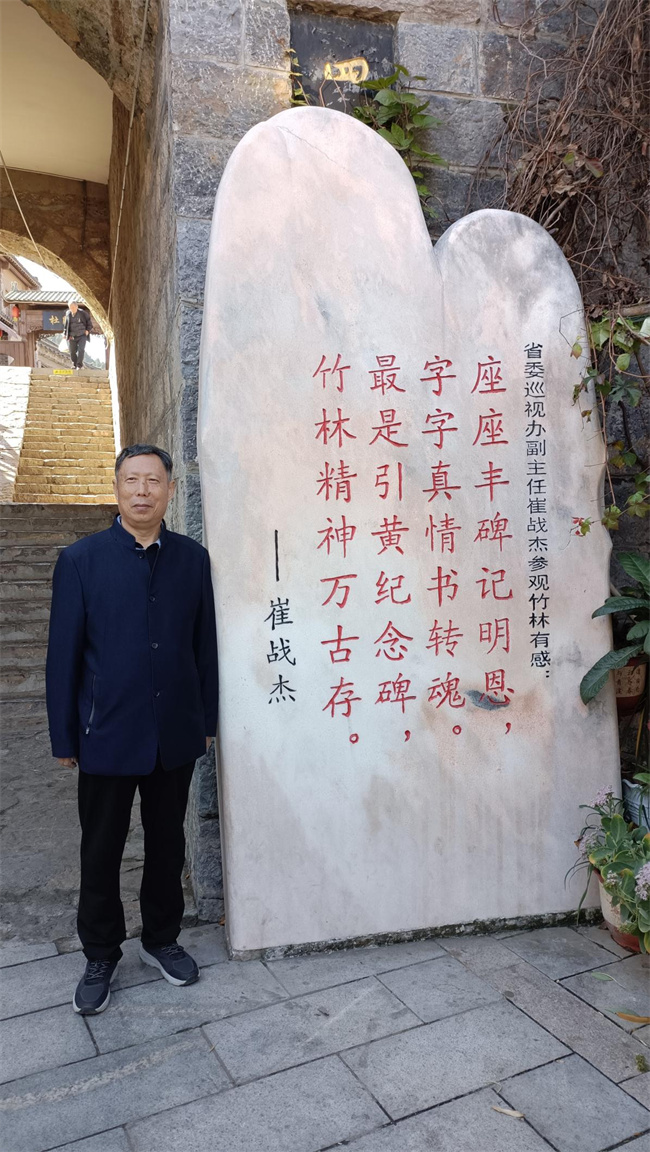 省委巡视办副主任崔战杰参观竹林有感：
座座丰碑记明恩，
字字真情书转魂。
最是引黄纪念碑，
竹林精神万古存。
——崔战杰